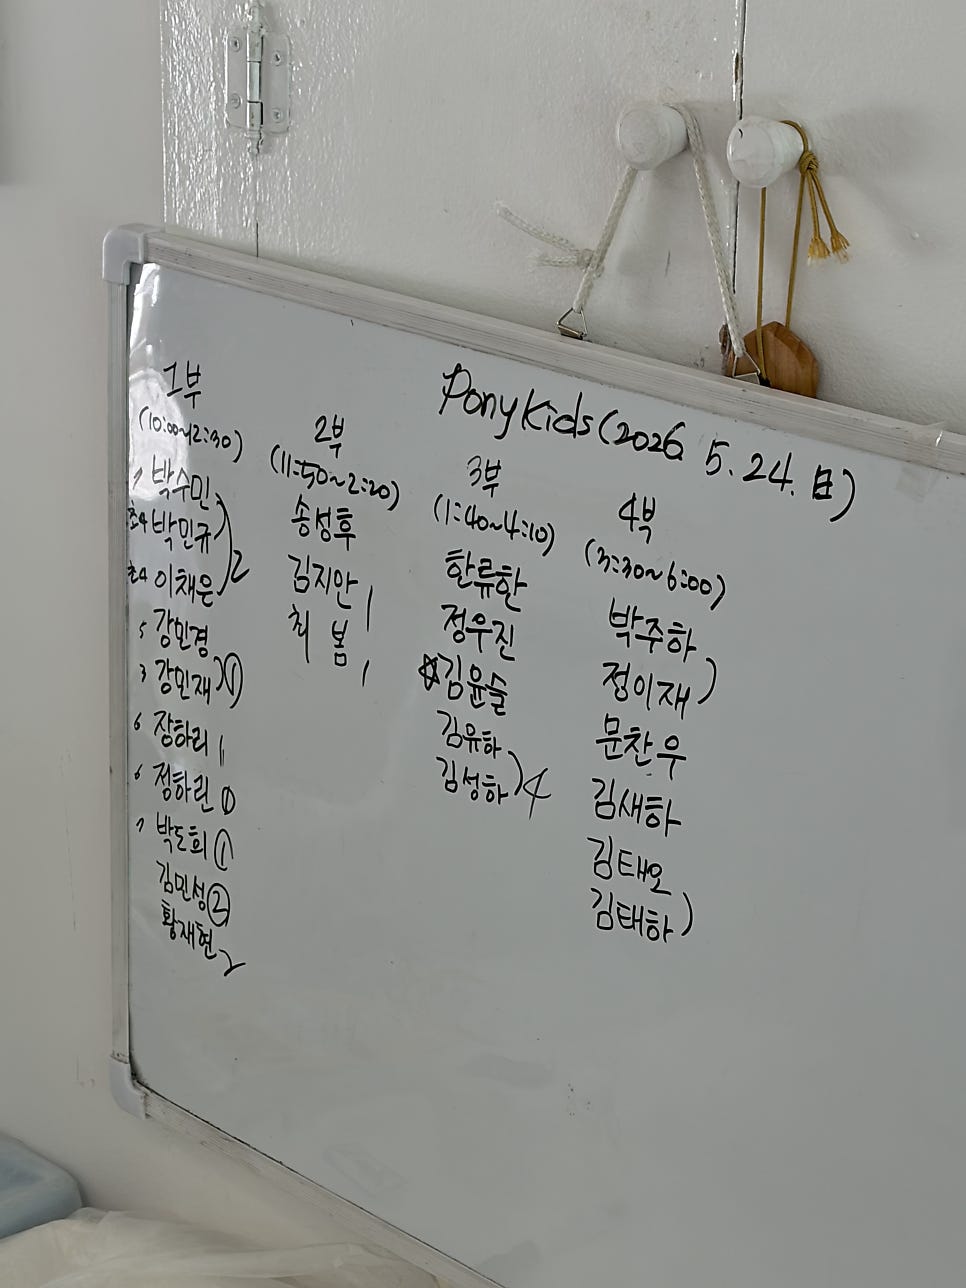 Pony Kids (2026. 5. 24. 日)
1부
(10:00~12:30)
7 박수민
초4 박민규
초4 이채은 ) 2
5 강민경
3 강민재 ) ①
6 장하리 1
6 정하린 ①
7 박도희 ①
김민성 ②
황재현 2
2부
(11:50~2:20)
송성후
김지안 1
최 봄 1
3부
(1:40~4:10)
한류한
정우진
☆김윤슬
김유하
김성하 ) 4
4부
(3:30~6:00)
박주하
정이재 )
문찬우
김새하
김태오
김태하 )